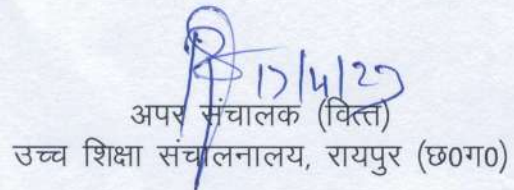 17/4/23
अपर संचालक (वित्त)
उच्च शिक्षा संचालनालय, रायपुर (छ0ग0)